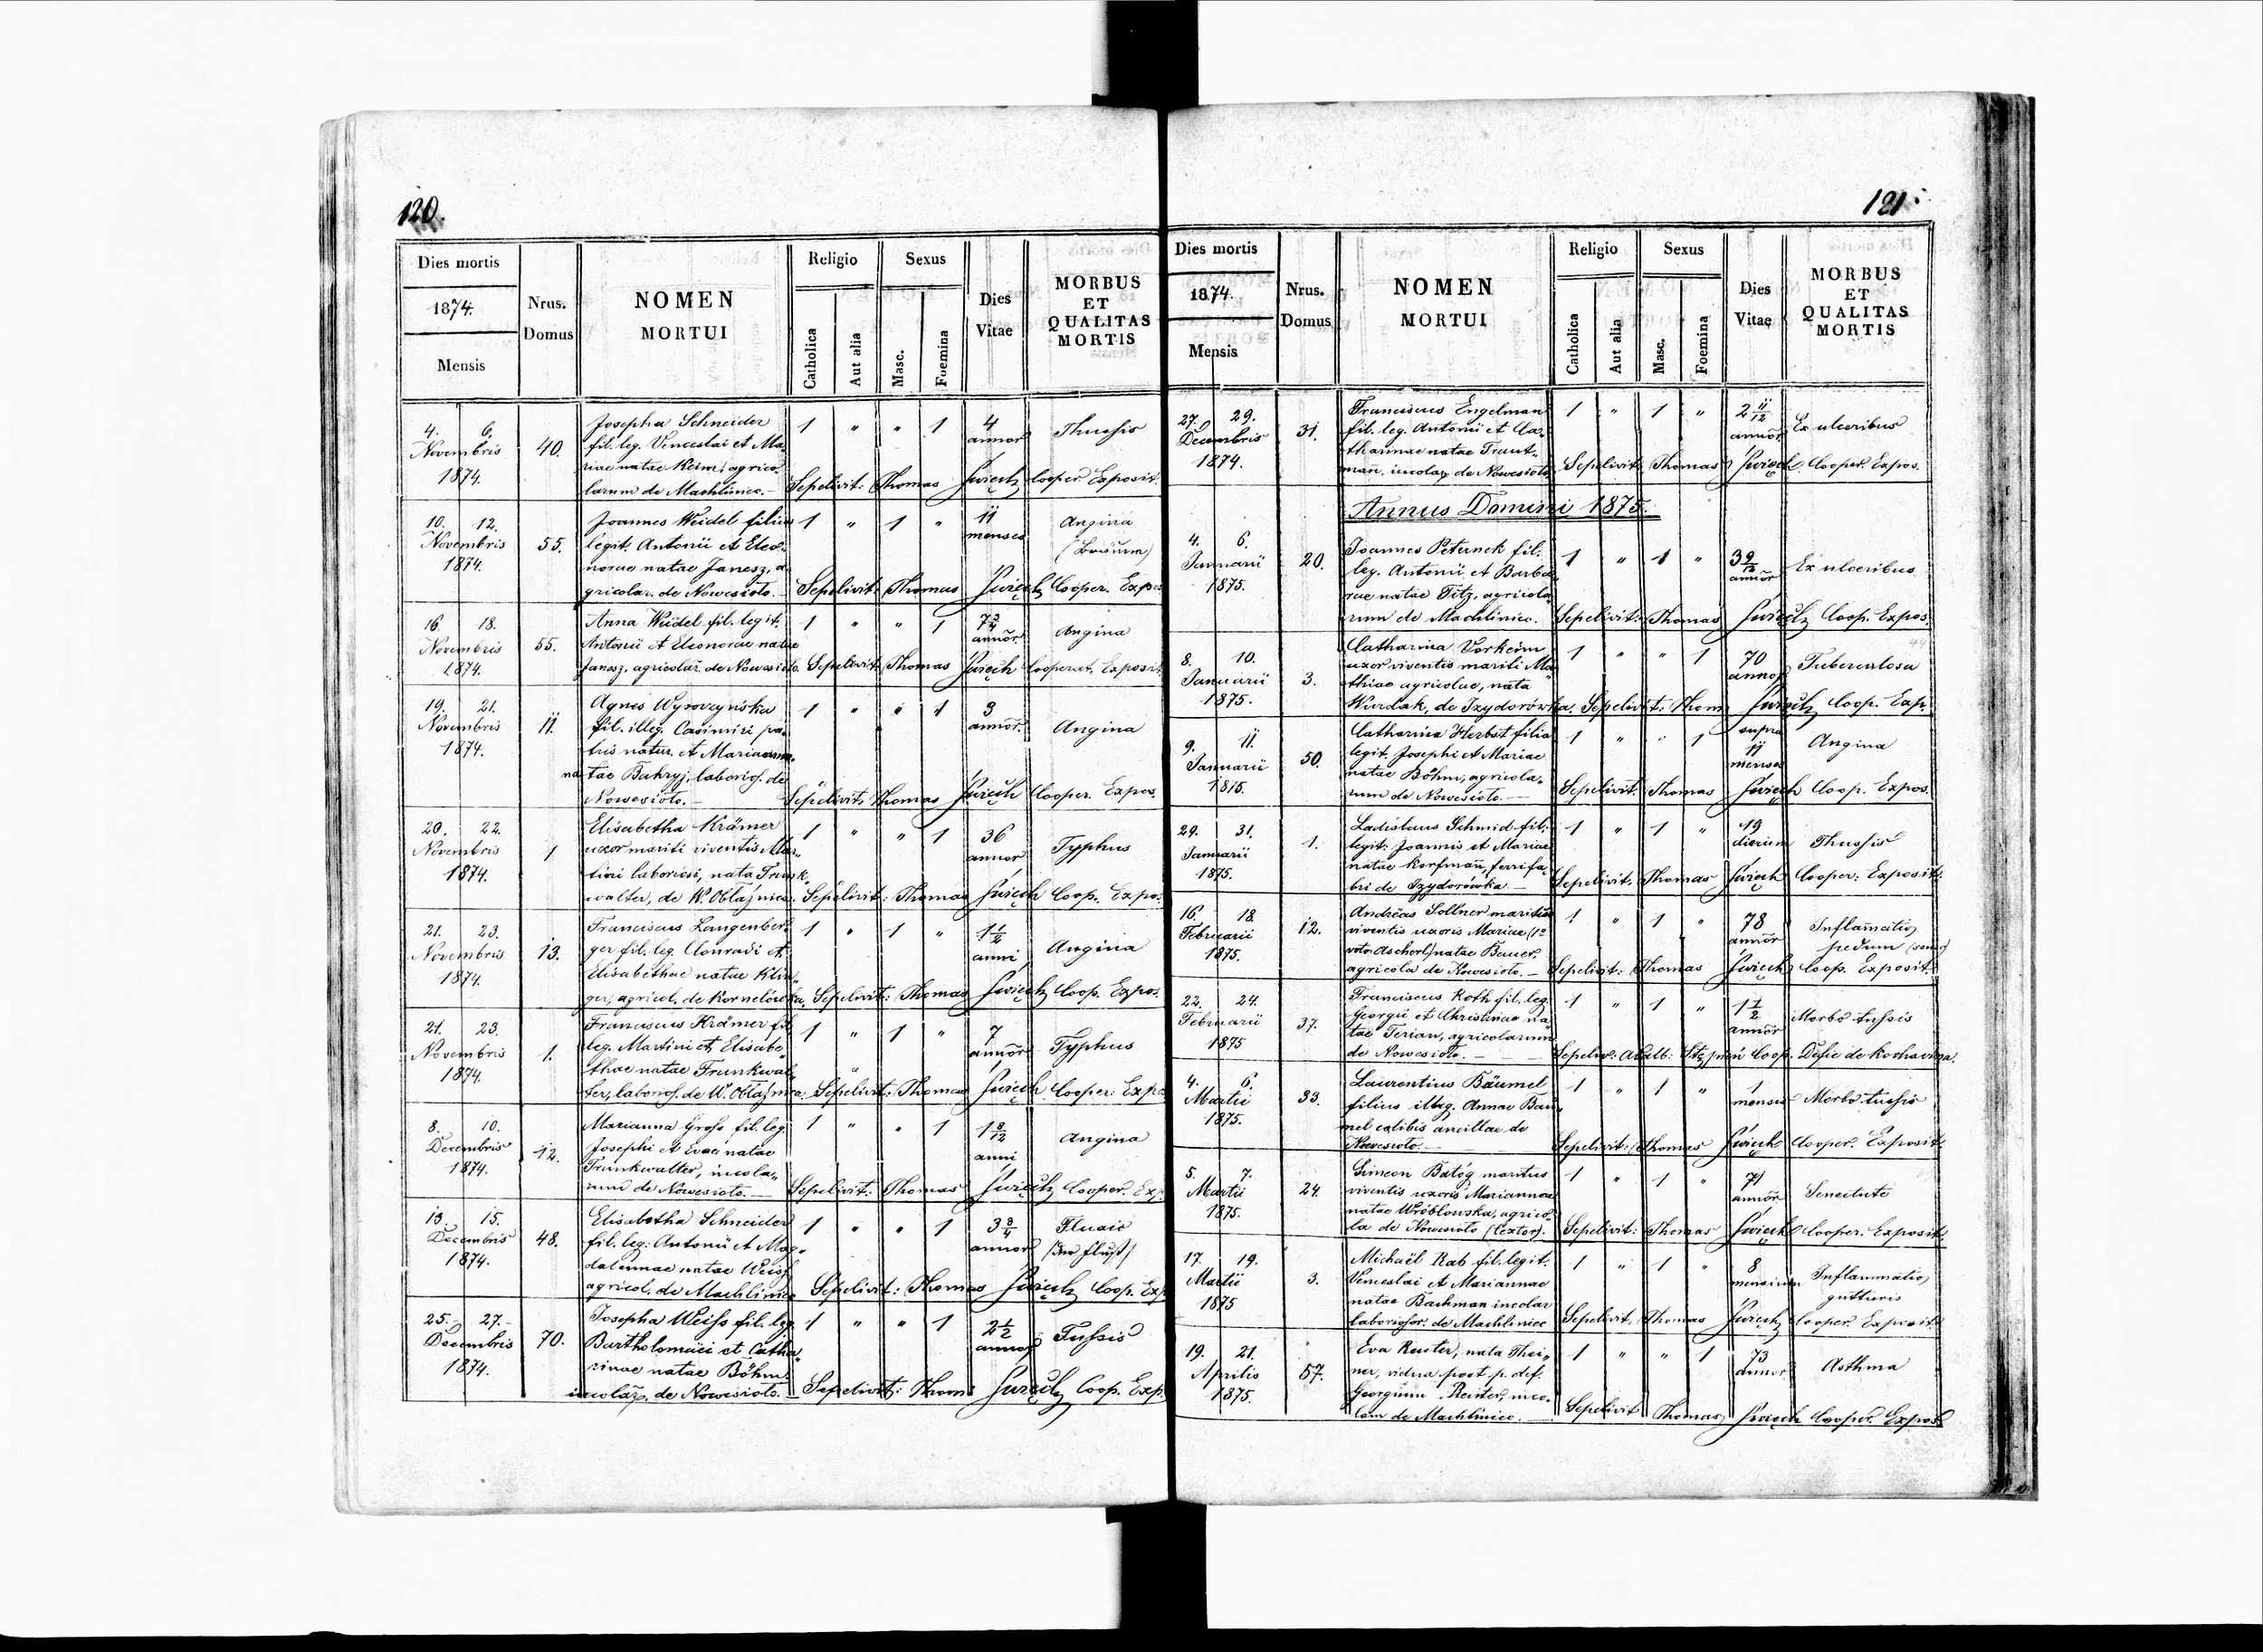 120.
Dies mortis
1874.
Mensis
Nrus.
Domus
NOMEN
MORTUI
Religio
Catholica
Aut alia
Sexus
Masc.
Foemina
Dies
Vitae
MORBUS
ET
QUALITAS
MORTIS
4. 6.
Novembris
1874.
40.
Josepha Schneider
fil. leg. Venceslai et Ma-
riae natae Keim, agrico-
larum de Machliniec.
1 " " 1
4
annor
Thussis
Sepelivit: Thomas Świech Cooper. Exposit.
10. 12.
Novembris
1874.
55.
Joannes Weidel filius
legit. Antonii et Eleo-
norae natae Janesz, a-
gricolar. de Nowesioło.
1 " 1 "
11
menses
Angina
Sepelivit: Thomas Świech Cooper. Expos.
16. 18.
Novembris
1874.
55.
Anna Weidel fil. legit.
Antonii et Eleonorae natae
Janesz, agricolar de Nowesioło.
1 " " 1
annor
Angina
Sepelivit: Thomas Świech Cooperat. Exposit.
19. 21.
Novembris
1874.
11.
Agnes Wyroczyńska
fil. illeg. Casimiri pa-
tris natur. et Mariannae
natae Bahryj, laborios. de
Nowesioło.
1 " " 1
3
annor.
Angina
Sepelivit: Thomas Świech Cooper. Expos.
20. 22.
Novembris
1874.
1
Elisabetha Krämer
uxor mariti viventis Mar-
tini laboriosi, nata Trunk-
walter, de W. Obłaźnica.
1 " " 1
36
annor
Typhus
Sepelivit: Thomas Świech Coop. Expos.
21. 23.
Novembris
1874.
13.
Franciscus Langenber-
ger fil. leg. Conradi et
Elisabethae natae Klin-
ger, agricol. de Kornelówka.
1 " 1 "
1 1/2
anni
Angina
Sepelivit: Thomas Świech Coop. Expos.
21. 23.
Novembris
1874.
1.
Franciscus Krämer fil.
leg. Martini et Elisabe-
thae natae Trunkwal-
ter, laborios. de W. Obłaźnica.
1 " 1 "
7
annor
Typhus
Sepelivit: Thomas Świech Cooper. Expos.
8. 10.
Decembris
1874.
12.
Marianna Gross fil. leg.
Josephi et Evae natae
Trunkwalter, incola-
rum de Nowesioło.
1 " " 1
1 8/12
anni
Angina
Sepelivit: Thomas Świech Cooper. Exp.
13. 15.
Decembris
1874.
48.
Elisabetha Schneider
fil. leg. Antonii et Mag-
dalennae natae Weiss
agricol. de Machliniec
1 " " 1
3 3/4
annor
/der Fluß/
Sepelivit: Thomas Świech Coop. Exp.
25. 27.
Decembris
1874.
70.
Josepha Weiss fil. leg.
Bartholomaei et Catha-
rinae natae Böhm
incolar. de Nowesioło.
1 " " 1
2 1/2
annor
Tussis
Sepelivit: Thom. Świech Coop. Exp.
121.
Dies mortis
1874.
Mensis
Nrus.
Domus
NOMEN
MORTUI
Religio
Catholica
Aut alia
Sexus
Masc.
Foemina
Dies
Vitae
MORBUS
ET
QUALITAS
MORTIS
27. 29.
Decembris
1874.
31.
Franciscus Engelman
fil. leg. Antonii et Ca-
tharinae natae Traut-
man, incolar. de Nowesioło
1 " 1 "
2 11/12
annor
Ex ulceribus
Sepelivit: Thomas Świech Cooper. Expos.
Annus Domini 1875.
4. 6.
Januarii
1875.
20.
Joannes Peternek fil.
leg. Antonii et Barba-
rae natae Titz, agricola-
rum de Machliniec.
1 " 1 "
3 9/12
annor
Ex ulceribus
Sepelivit: Thomas Świech Coop. Expos.
8. 10.
Januarii
1875.
3.
Catharina Vorkeim
uxor viventis mariti Ma-
thiae agricolae, nata
Wurdak, de Izydorówka.
1 " " 1
70
annor
Tuberculosa
Sepelivit: Thom. Świech Coop. Exp.
9. 11.
Januarii
1875.
50.
Catharina Herbst filia
legit. Josephi et Mariae
natae Böhm, agricola-
rum de Nowesioło.
1 " " 1
supra
11
menses
Angina
Sepelivit: Thomas Świech Coop. Expos.
29. 31.
Januarii
1875.
1.
Ladislaus Schmid fil.
legit. Joannis et Mariae
natae Korfmañ, ferrifa-
bri de Izydorówka
1 " 1 "
19
dierum
Thussis
Sepelivit: Thomas Świech Cooper. Exposit.
16. 18.
Februarii
1875.
12.
Andreas Sollner maritus
viventis uxoris Mariae (1o
voto Ascherl) natae Bauer,
agricola de Nowesioło.
1 " 1 "
78
annor
Inflamatio
pedum
Sepelivit: Thomas Świech Coop. Exposit.
22. 24.
Februarii
1875
37.
Franciscus Roth fil. leg.
Georgii et Christinae na-
tae Terian, agricolarum
de Nowesioło.
1 " 1 "
1 1/2
annor
Morbo tussis
4. 6.
Martii
1875.
33.
Laurentius Bäumel
filius illeg. Annae Bäu-
mel celibis ancillae de
Nowesioło.
1 " 1 "
1
mensis
Morbo tussis
Sepelivit: Thomas Świech Cooper. Exposit.
5. 7.
Martii
1875.
24.
Simeon Batóg maritus
viventis uxoris Mariannae
natae Wróblowska, agrico-
la de Nowesioło (textor).
1 " 1 "
71
annor
Senectute
Sepelivit: Thomas Świech Cooper. Exposit.
17. 19.
Martii
1875
3.
Michaël Rab fil. legit.
Venceslai et Mariannae
natae Bachman incolar
laboriosor. de Machliniec
1 " 1 "
8
mensium
Inflammatio
gutturis
Sepelivit: Thomas Świech Cooper. Exposit.
19. 21.
Aprilis
1875.
57.
Eva Reuter, nata Thei-
ner, vidua post p. def.
Georgium Reuter, inco-
lam de Machliniec.
1 " " 1
73
annor
Asthma
Sepelivit Thomas Świech Cooper. Expos.